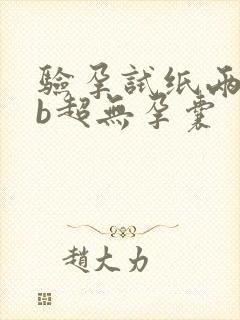 驗孕試紙兩
b超無孕囊
趙大力